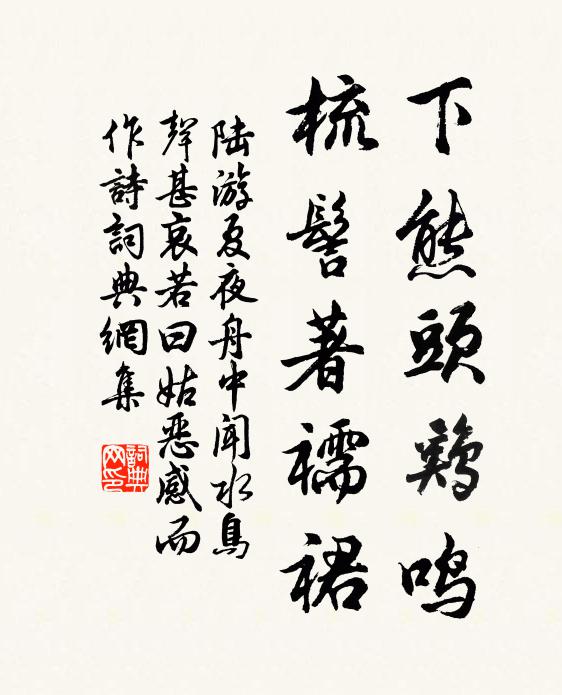 下熊頭鷄鳴
梳髻著襦裙
陆游夏夜舟中闻水鳥
聲甚哀若曰姑惡感而
作詩詞典網集
詞典网印